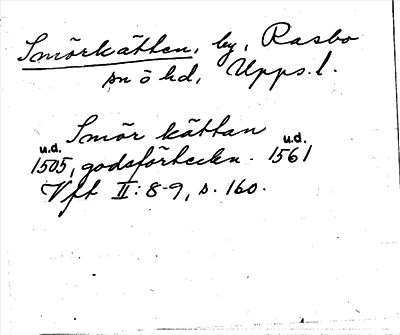 Smörkätten, by, Rasbo
sn ö hd, Upps.l.
Smör kättan
u.d. u.d.
1505, godsförteckn. 1561
Vft II:8-9, s. 160.